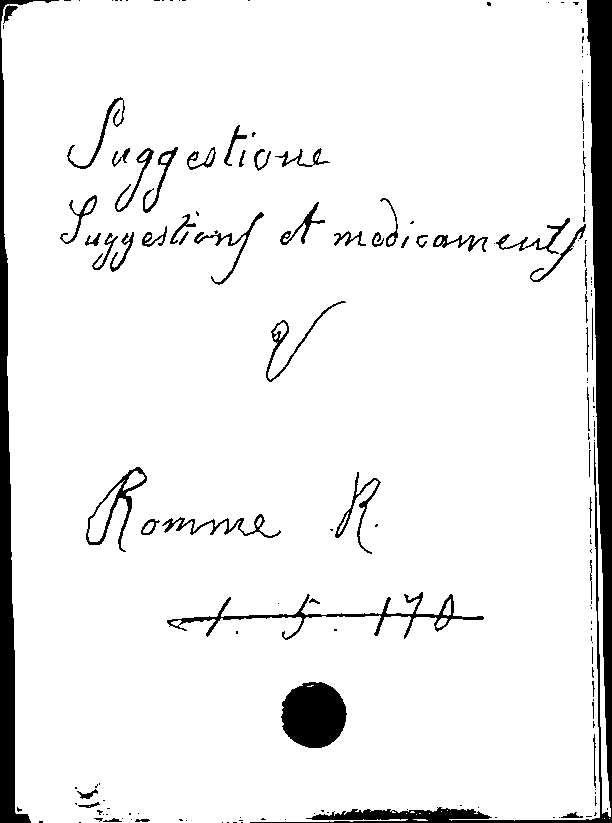 Suggestione
Suggestions et medicaments
V
Romme R.
1. 5. 170